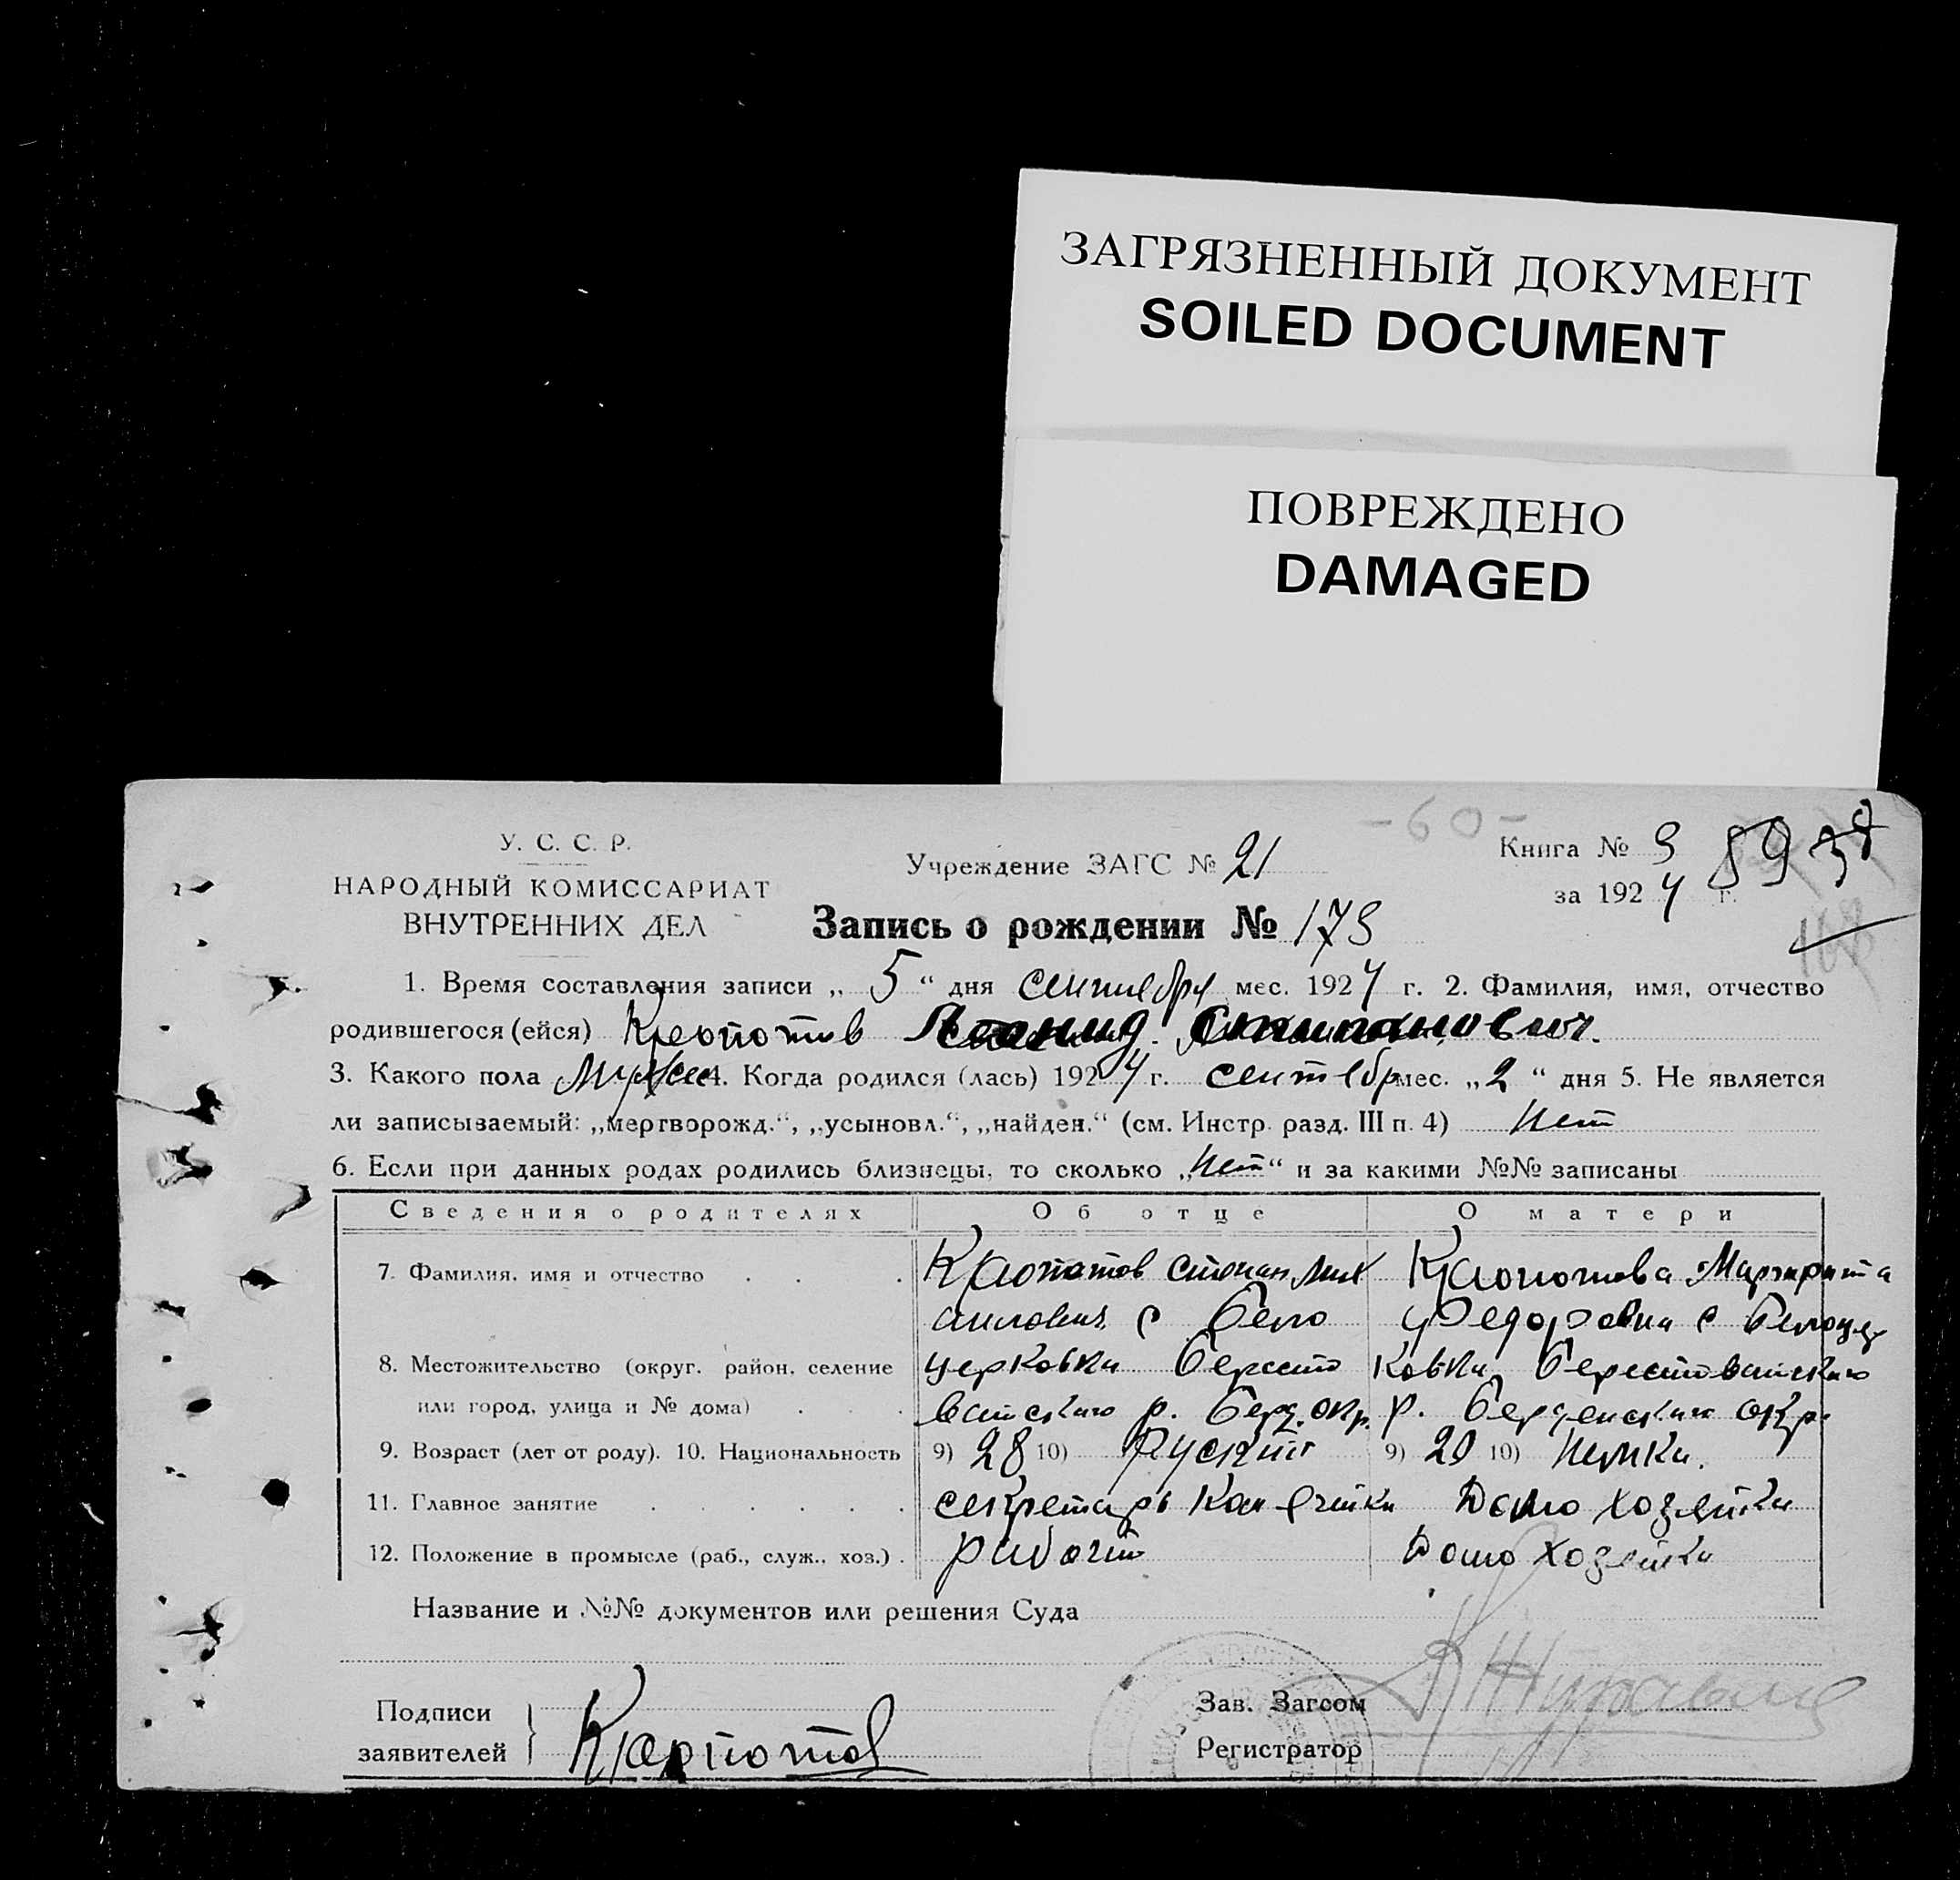 ЗАГРЯЗНЕННЫЙ ДОКУМЕНТ
SOILED DOCUMENT
ПОВРЕЖДЕНО
DAMAGED
-60-
У. С. С. Р.
НАРОДНЫЙ КОМИССАРИАТ
ВНУТРЕННИХ ДЕЛ
Учреждение ЗАГС № 21
Книга № 3 59
за 1924 г.
Запись о рождении № 173
1. Время составления записи „ 5 “ дня сентебря мес. 1924 г. 2. Фамилия, имя, отчество
родившегося (ейся) Кропотов Леонид
3. Какого пола Мужск 4. Когда родился (лась) 1924 г. сентебр мес. „ 2 “ дня 5. Не является
ли записываемый: „мертворожд.“, „усыновл.“, „найден.“ (см. Инстр. разд. III п. 4) Нет
6. Если при данных родах родились близнецы, то сколько „Нет“ и за какими №№ записаны
Сведения о родителях Об отце О матери
7. Фамилия, имя и отчество Кропотов Степан Мих Кропотова Маргарита
аилович с Бело Федоровна с Белоцер
8. Местожительство (округ. район, селение церковки Бересто ковки Берестованского
или город, улица и № дома) ванского р. Берд. окр. р. Берденского окр.
9. Возраст (лет от роду). 10. Национальность 9) 28 10) Руский 9) 20 10) Немка.
11. Главное занятие секретарь Домо хозяйка
12. Положение в промысле (раб., служ., хоз.) рабочий Домо хозяйка
Название и №№ документов или решения Суда
Подписи
заявителей Кропотов
Зав. Загсом
Регистратор